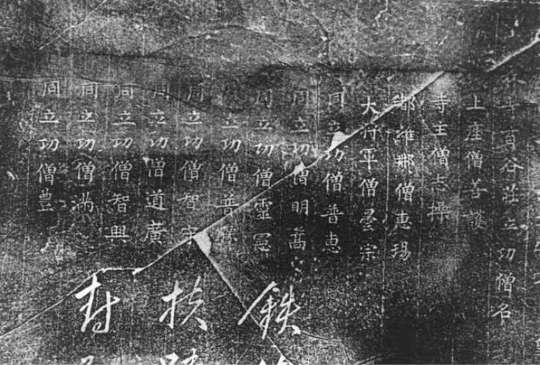 谷莊立功僧名
上座僧善護
寺主僧志操
都維那僧惠瑒
大將軍僧曇宗
同立功僧普惠
同立功僧明嵩
同立功僧靈憲
立功僧普勝
同立功僧智守
同立功僧道廣
同立功僧智興
同立功僧滿
同立功僧豊
鉄
扶
封